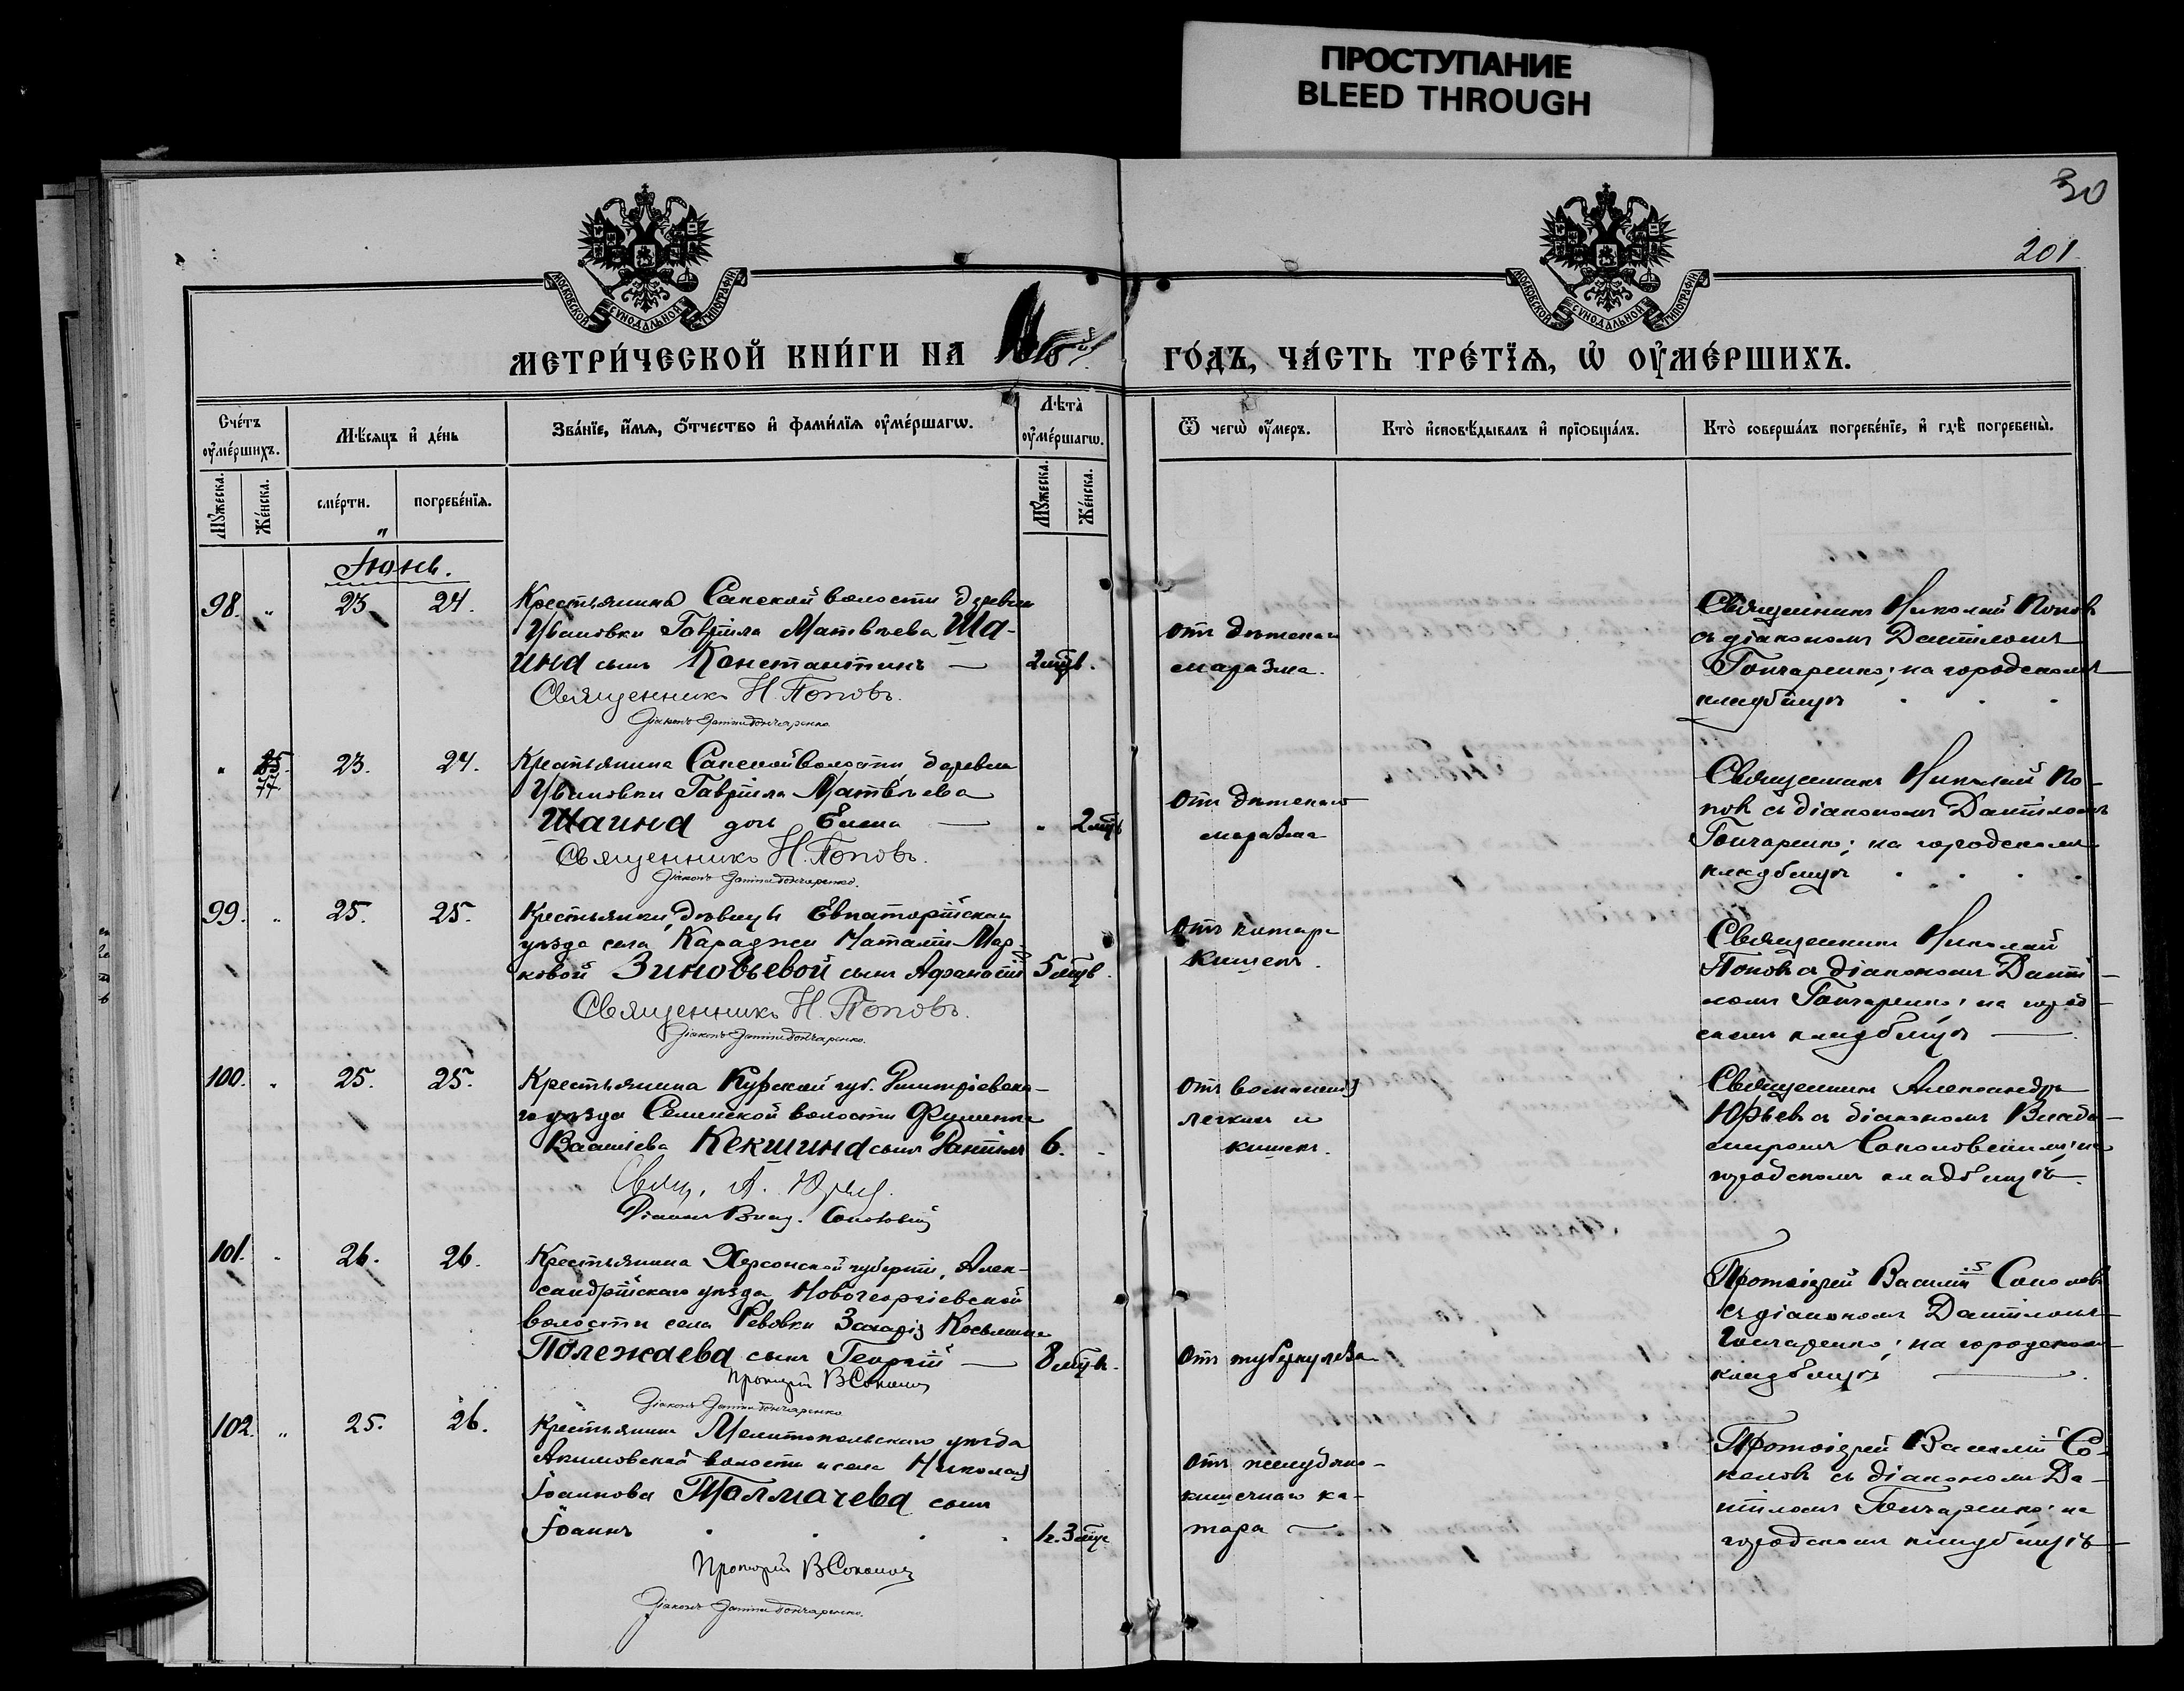 ПРОСТУПАНИЕ
BLEED THROUGH
30
201.
МОСКОВСКОЙ СѴНОДАЛЬНОЙ ТИПОГРАФІИ
МОСКОВСКОЙ СѴНОДАЛЬНОЙ ТИПОГРАФІИ
МЕТРИ́ЧЕСКОЙ КНИ́ГИ НА
ГО́ДЪ, ЧА́СТЬ ТРЕ́ТЇѦ, Ѡ҆ ОУ҆МЕ́РШИХЪ.
Сче́тъ оу҆ме́ршихъ.
Мѣ́сяцъ и҆ де́нь
Зва́нїе, и҆́мѧ, ѻ҆́тчество и҆ фами́лїѧ оу҆ме́ршагѡ.
Лѣта̀ оу҆ме́ршагѡ.
Ѿ чегѡ̀ оу҆́меръ.
Кто̀ и҆сповѣ́дывалъ и҆ прїѡбща́лъ.
Кто̀ соверша́лъ погребе́нїе, и҆ гдѣ̀ погребены̀.
Мꙋ́жеска.
Же́нска.
сме́рти.
погребе́нїѧ.
Мꙋ́жеска.
Же́нска.
Іюнь.
98. " 23 24.
Крестьянина Сакской волости деревни
Ивановки Гавріила Матвѣева Ша-
ина сынъ Константинъ — 2 мѣс.
Священникъ Н. Поповъ.
Діаконъ Даніилъ Гончаренко
отъ дѣтскаго
маразма.
Священникъ Николай Поповъ
съ діакономъ Даніиломъ
Гончаренко; на городскомъ
кладбищѣ
" 77. 23. 24.
Крестьянина Сакской волости деревни
Ивановки Гавріила Матвѣева
Шаина дочь Елена — " 2 мѣс
Священникъ Н. Поповъ.
Діаконъ Даніилъ Гончаренко.
Отъ дѣтскаго
маразма
Священникъ Николай По-
повъ съ діакономъ Даніиломъ
Гончаренко; на городскомъ
кладбищѣ
99. " 25. 25.
Крестьянки, дѣвицы Евпаторійскаго
уѣзда села Караджи Наталіи Мар-
ковой Зиновьевой сынъ Афанасій 5 мѣс.
Священникъ Н. Поповъ.
Діаконъ Даніилъ Гончаренко.
Отъ катара
кишекъ.
Священникъ Николай
Поповъ съ діакономъ Даніи-
ломъ Гончаренко; на город-
скомъ кладбищѣ —
100. " 25. 25.
Крестьянина Курской губ.
уѣзда волости
Васильева Кекшина сынъ 6. "
Свящ. А. Юрьев.
Діаконъ Влад. Соколовскій
Отъ
легкихъ и
кишекъ.
Священникъ Александръ
Юрьевъ съ діакономъ Влади-
міромъ Соколовскимъ; на
городскомъ кладбищѣ.
101. " 26. 26.
Крестьянина Херсонской губерніи, Алек-
сандрійскаго уѣзда, Новогеоргіевской
волости села Ревовки Захарія Косьмина
Полежаева сынъ Георгій — 8 мѣс.
Протоіерей В Соколов
Діаконъ Даніилъ Гончаренко
Отъ туберкулеза
Протоіерей Василій Соколовъ
съ діакономъ Даніиломъ
Гончаренко; на городскомъ
кладбищѣ —
102. " 25. 26.
Крестьянина Мелитопольскаго уѣзда
Акимовской волости и села Николая
Іоаннова Толмачева сынъ
Іоаннъ 1 г. 3 мѣс.
Протоіерей В Соколов
Діаконъ Даніилъ Гончаренко.
Отъ желудочно-
кишечнаго ка-
тара —
Протоіерей Василій Со-
коловъ съ діакономъ Да-
ніиломъ Гончаренко; на
городскомъ кладбищѣ —